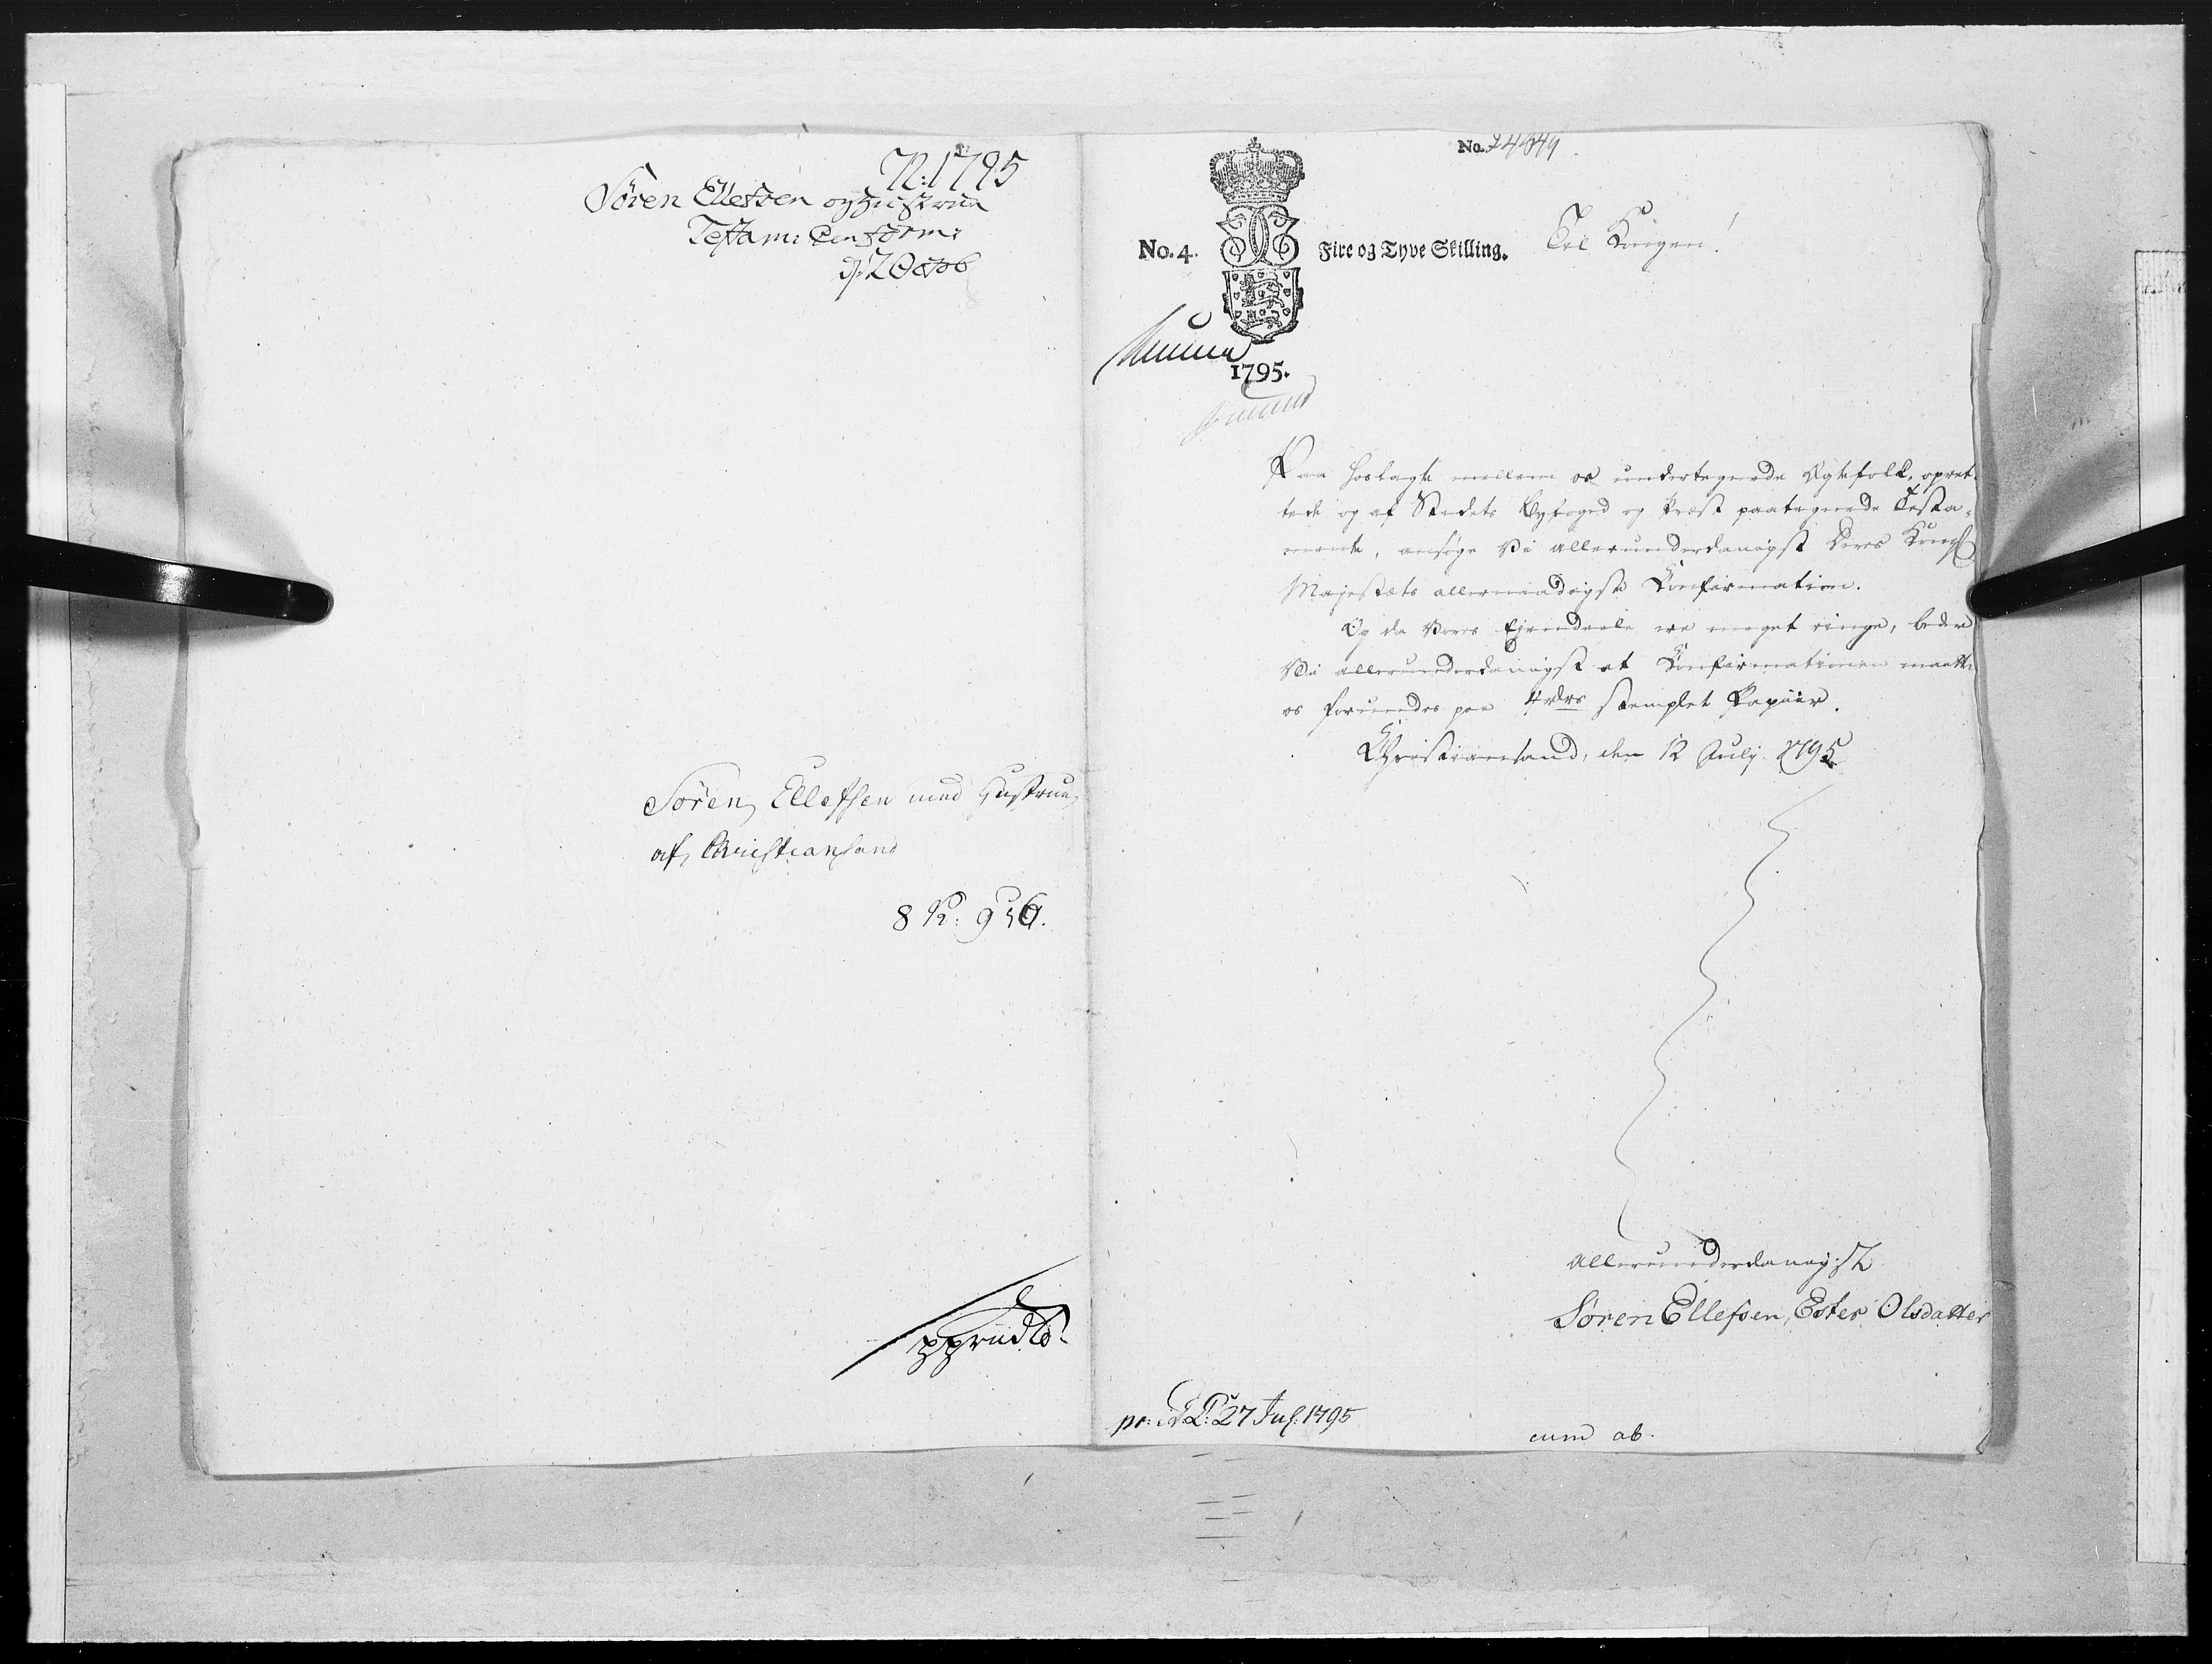 N: 1795
Søren Ellefsen og Hustrue
Testam: Confirm:
d: 2 Octob
Søren Ellefsen med Hustrue
af Christiansand
8 R: 9 s 6.
No. 24649
No. 4. Fire og Tyve Skilling. Til Kongen!
1795.
Paa hoslagte mellem os undertegnede Ægtefolk, opret-
tede og af Stedets Byfoged og Præst paategnede Testa-
mente, ansøge Vi allerunderdanigst Deres Kongl
Majestæts allernaadigste Confirmation.
Og da Vores Ejendeele ere meget ringe, bede
Vi allerunderdanigst at Confirmationen maatte
os forundes paa 4rdrs stemplet Papiir.
Christiansand, den 12 July 1795
Allerunderdanigst
Søren Ellefsen, Ester Olsdatter
pr: d: 27 Jul: 1795
cum ab.